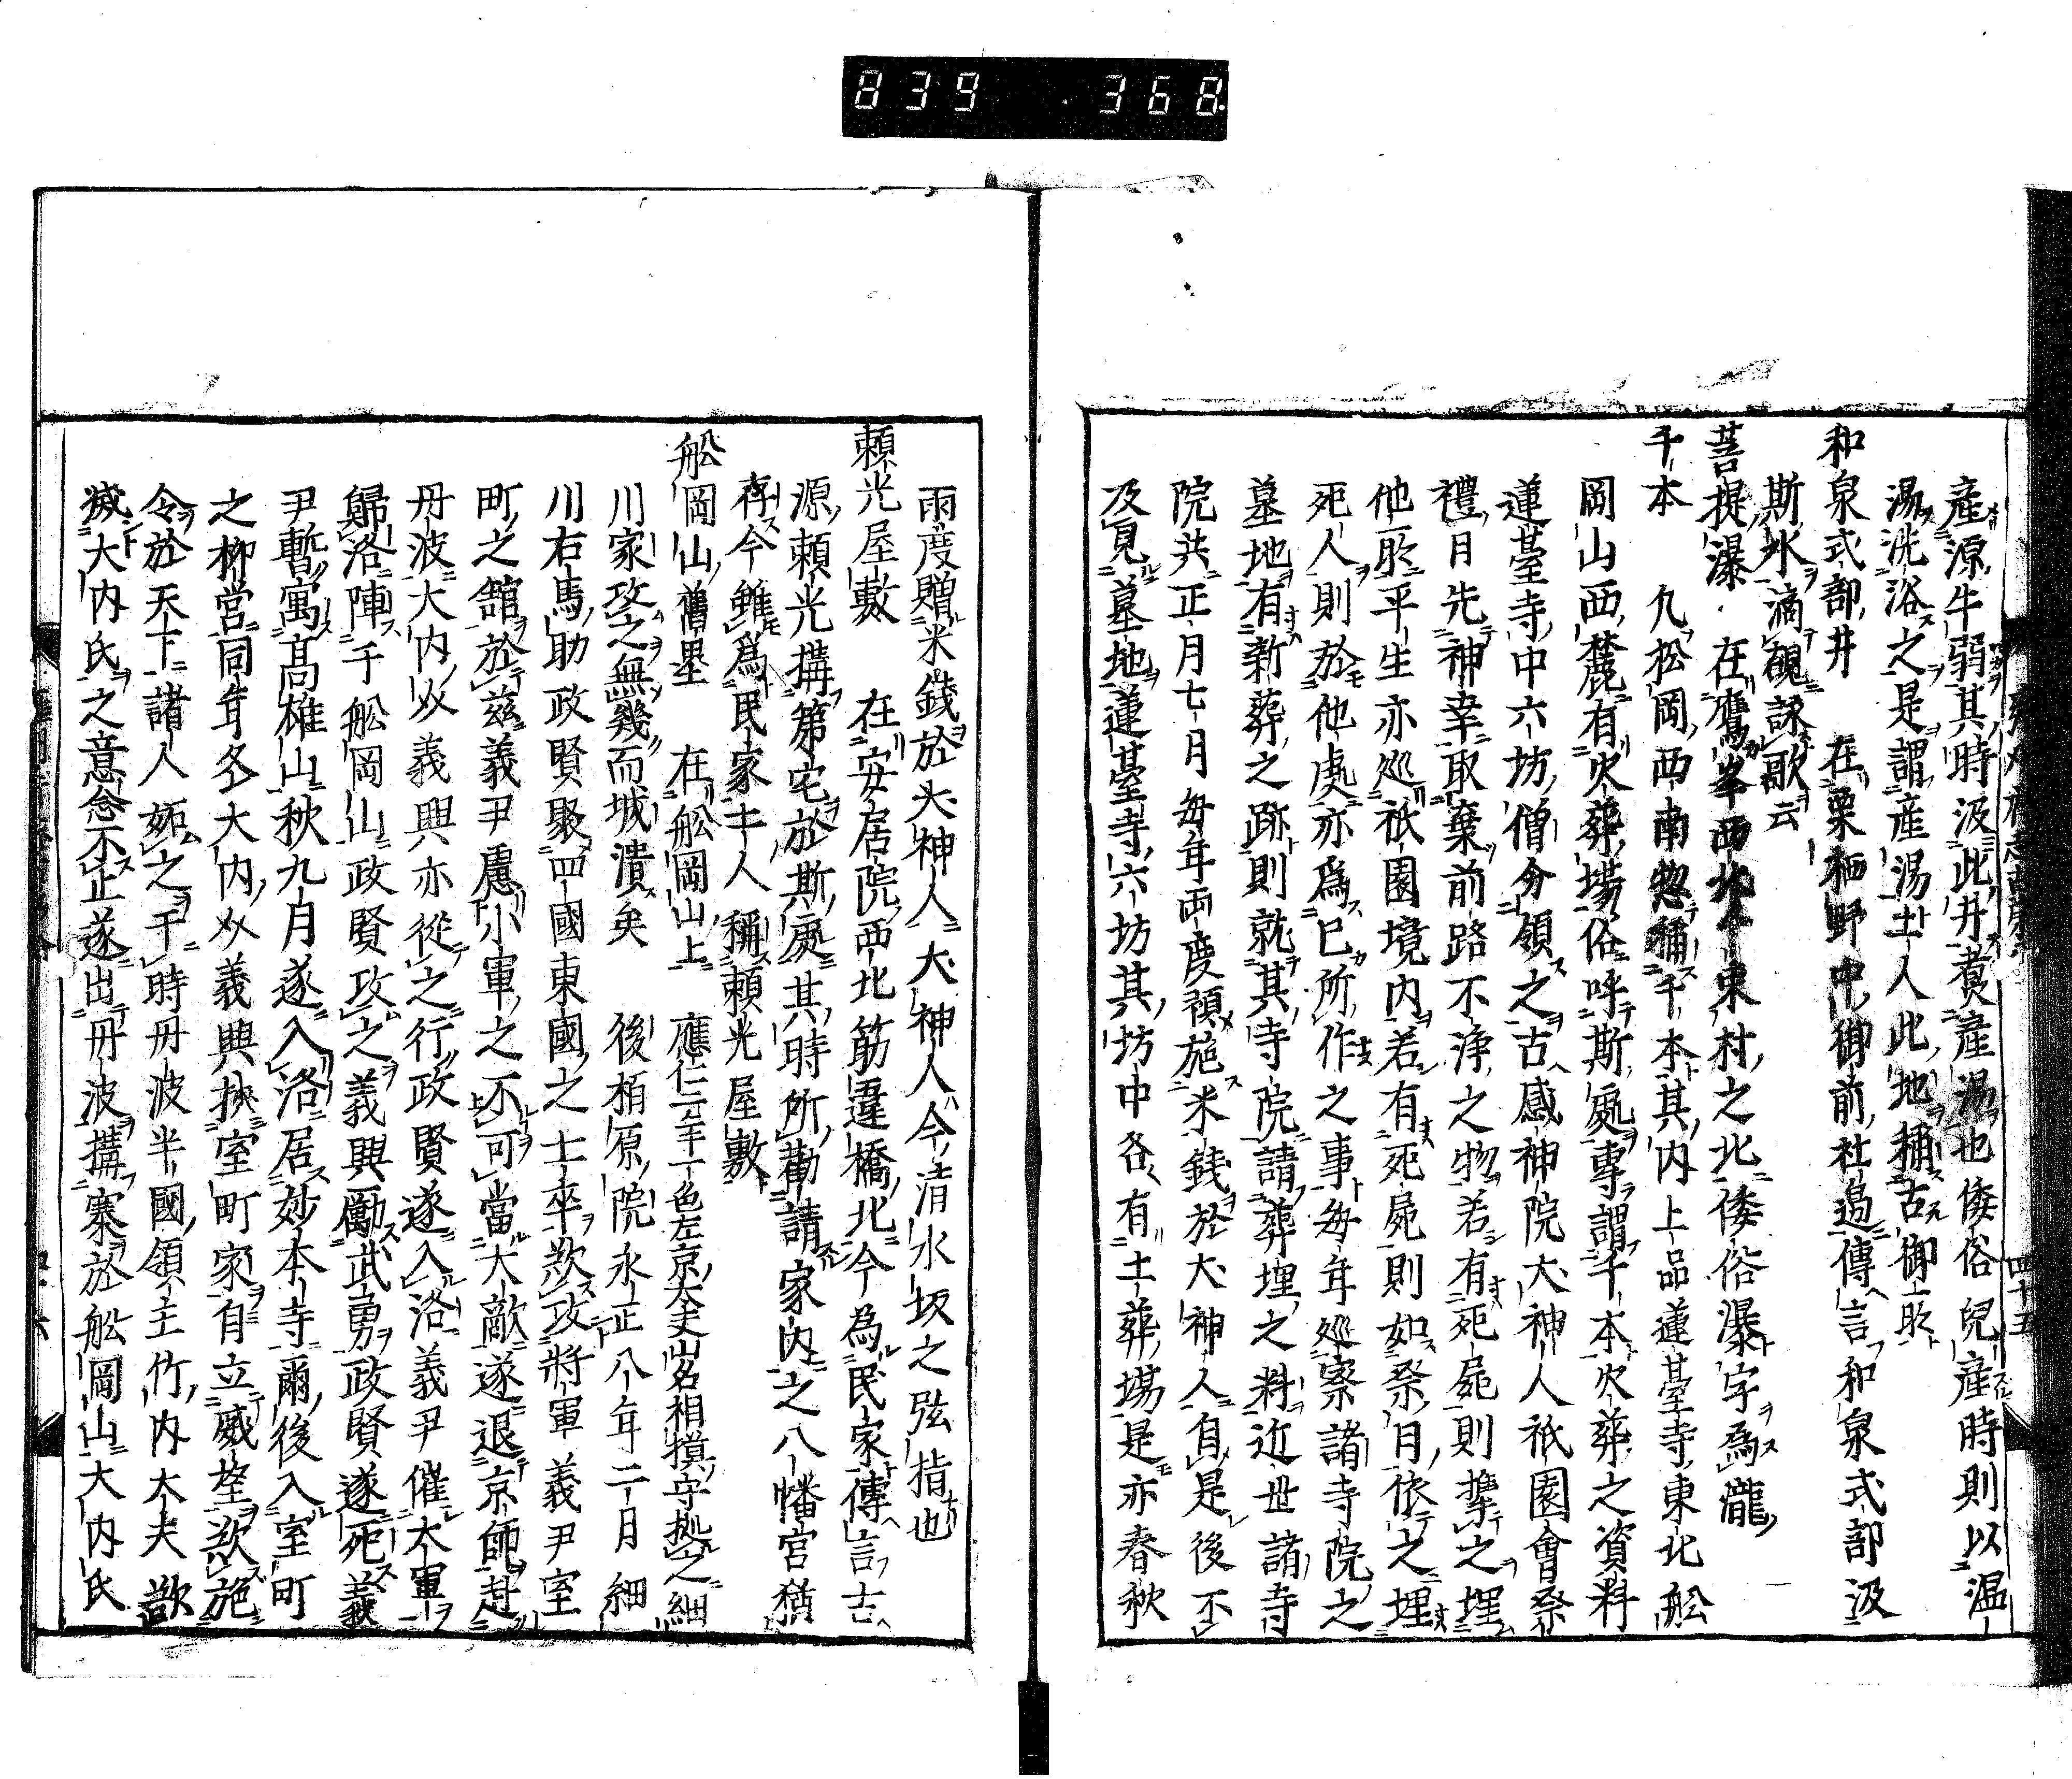 839 368
産源牛弱其時汲此井煑産湯也倭俗兒産時則以温
湯洗浴之是謂産湯土人此地稱古御所
和泉式部井 在栗栖野中御前社邊傳言和泉式部汲
斯水滴硯詠歌云
菩提瀑 在鷹峯西北千束村之北倭俗瀑字爲瀧
千本 凢松岡西南惣稱千本其内上品蓮臺寺東北舩
岡山西麓有火葬場俗呼斯處專謂千本火葬之資料
蓮臺寺中六坊僧分領之古感神院犬神人祇園會祭
禮月先神幸取棄前路不浄之物若有死屍則擧之埋
他所平生亦巡祇園境内若有死屍則如祭月依之埋
死人則於他處亦爲已所作之事毎年巡察諸寺院之
墓地有新葬之跡則就其寺院請葬埋之料近世諸寺
院共正月七月毎年兩度預施米銭於犬神人自是後不
及見墓地蓮臺寺六坊其坊中各有土葬場是亦春秋
四十五
雨度贈米錢於犬神人犬神人今清水坂之弦指也
頼光屋敷 在安居院西北筋違橋北今為民家傳言古
源頼光搆第宅於斯處其時所勸請家内之八幡宮猶
存今雖爲民家土人稱頼光屋敷
舩岡山舊壘 在舩岡山上 應仁二年一色左京大夫山名相摸守拠之細
川家攻之無幾而城潰矣 後栢原院永正八年二月細
川右馬助政賢聚四國東國之士卒欲攻將軍義尹室
町之舘於茲義尹慮小軍之不可當大敵遂退京師赴
丹波大内以義興亦從之行政賢遂入洛義尹催大軍
歸洛陣千舩岡山政賢攻之義興勵武勇政賢遂死義
尹暫寓髙雄山秋九月遂入洛居妙本寺爾後入室町
之柳營同年冬大内以義興挾室町家自立威望欲施
令於天下諸人妬之干時丹波半國領主竹内大夫欲
滅大内氏之意念不止遂出丹波搆寨於舩岡山大内氏